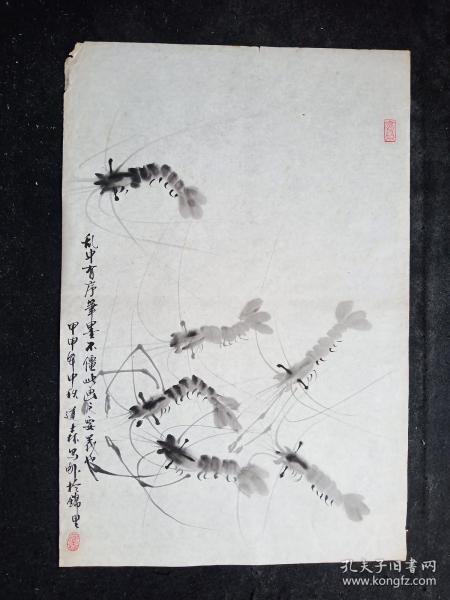 乱中有序笔墨不僵此画之要義也
甲申年中秋道森写虾於锦里
孔夫子旧书网
www.kongfz.com